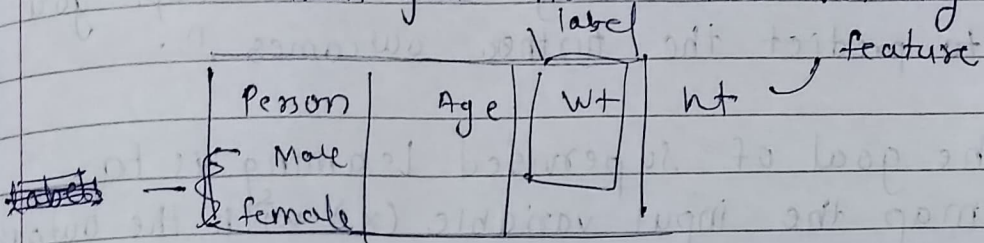 label
feature
Person Age Wt ht
Male
labels
female